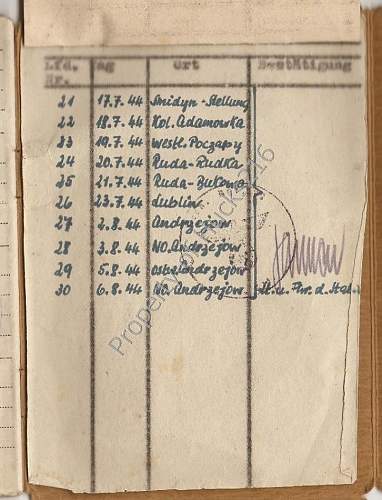 Lfd. Nr. Tag Ort Bestätigung
21 17.7.44 Smidyn-Stellung
22 18.7.44 Kol. Adamowka
23 19.7.44 westl. Poczapy
24 20.7.44 Ruda-Rudka
25 21.7.44 Ruda-Bukowa
26 23.7.44 Lublin
27 2.8.44 Andrzejow
28 3.8.44 NO. Andrzejow
29 5.8.44 ostw. Andrzejow
30 6.8.44 NO. Andrzejow
Property of